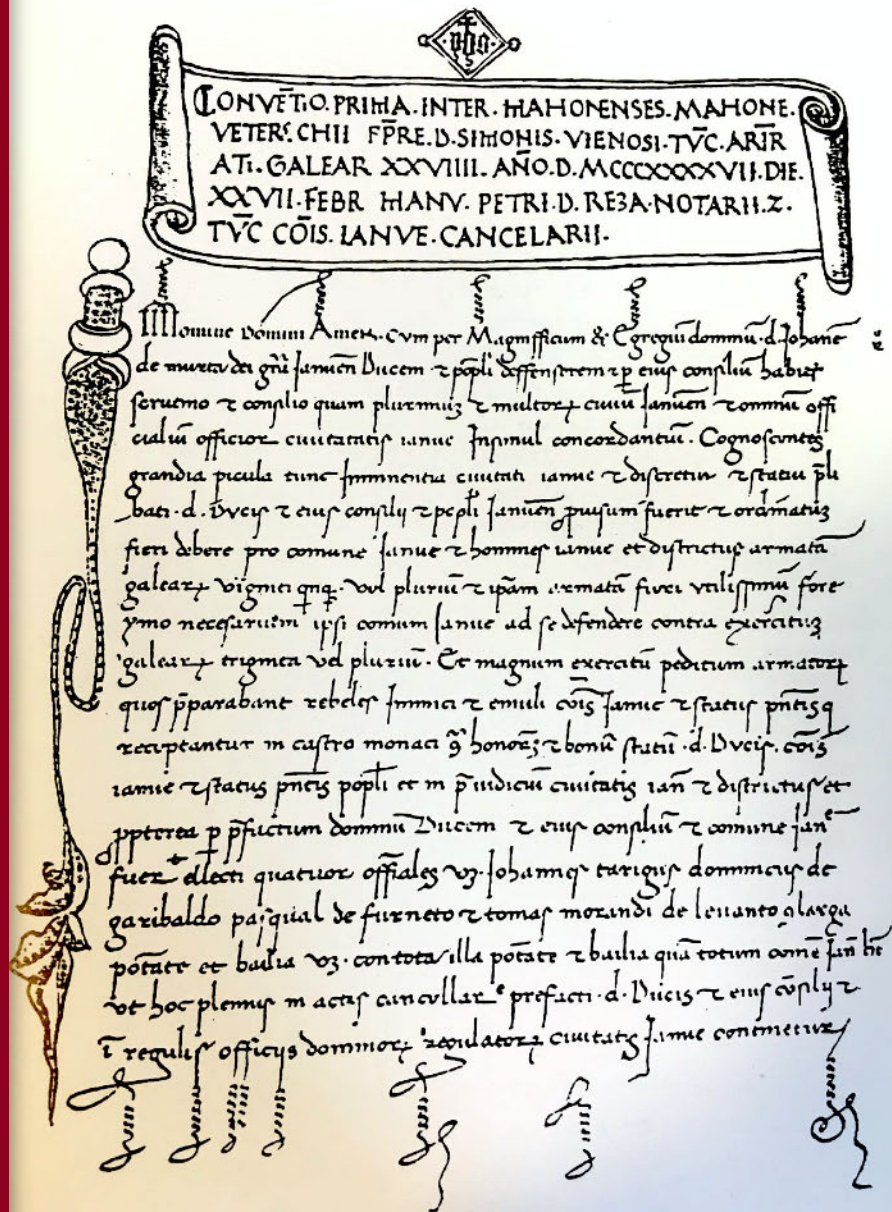 yhs
CONVĒTIO. PRIMA. INTER. MAHONENSES. MAHONE.
VETERꝭ. CHII FP̄RE. D. SIMONIS. VIENOSI. TV̄C. ARM̄R
ATI. GALEAR XXVIIII. AN̄O. D. MCCCXXXXVII. DIE.
XXVII. FEBR MANV. PETRI. D. REZA. NOTARII. Z.
TV̄C CŌIS. IANVE. CANCELARII.
Nomine Domini Amen. Cum per Magnifficum & Egregiū dominū .d. Johanē
de murta dei gr̄a Januen̄ Ducem ⁊ pop̄li deffensorem ⁊ ꝑ eius consiliū habito
⁊ consilio quam plurimuȝ ⁊ multoꝝ ciuiū Januen̄ ⁊ omniū offi
cialiū officior ciuitatis ianue Insimul concordantiū. Cognoscentes
grandia picula tunc Imminentia ciuitati ianue ⁊ ⁊ statui
.d. Ducis ⁊ eius consilij ⁊ pop̄li Januen̄ ꝓuisum fuerit ⁊ ordinatuȝ
fieri debere pro comune Janue ⁊ homines ianue et districtus armatā
galeaꝝ viginti qnqꝫ. vel pluriū ⁊ ip̄am armatā fieri vtilissimū fore
ymo necesarium ipsi comuni Janue ad se defendere contra exercituȝ
galeaꝝ triginta vel pluriū. Et magnum exercitū peditum armatoꝝ
quos p̄parabant rebeles Inimici ⁊ emuli cōis Janue ⁊ status pn̄tis q
receptantur in castro monaci ꝯ honorē ⁊ bonū statū .d. Ducis. cōis
ianue ⁊ status pn̄tis pop̄li et in p̄iudiciū ciuitatis ian̄ ⁊ districtus et
ꝓpterea ꝑ p̄factum dominū Ducem ⁊ eius consiliū ⁊ comune Jan̄e
fuer̄t ellecti quatuor offiales vȝ. Johannes tarigus dominicus de
garibaldo pasqual de furneto ⁊ tomas morandi de leuanto ꝯ larga
potate et bailia vȝ. con tota illa potate ⁊ bailia quā totum comē Jan̄ hēt
vt hoc plenius in actis cancellar̄e prefacti .d. Ducis ⁊ eius cōsilij ⁊
ī regulis officijs dominoꝝ regulatoꝝ ciuitatis Janue continetur